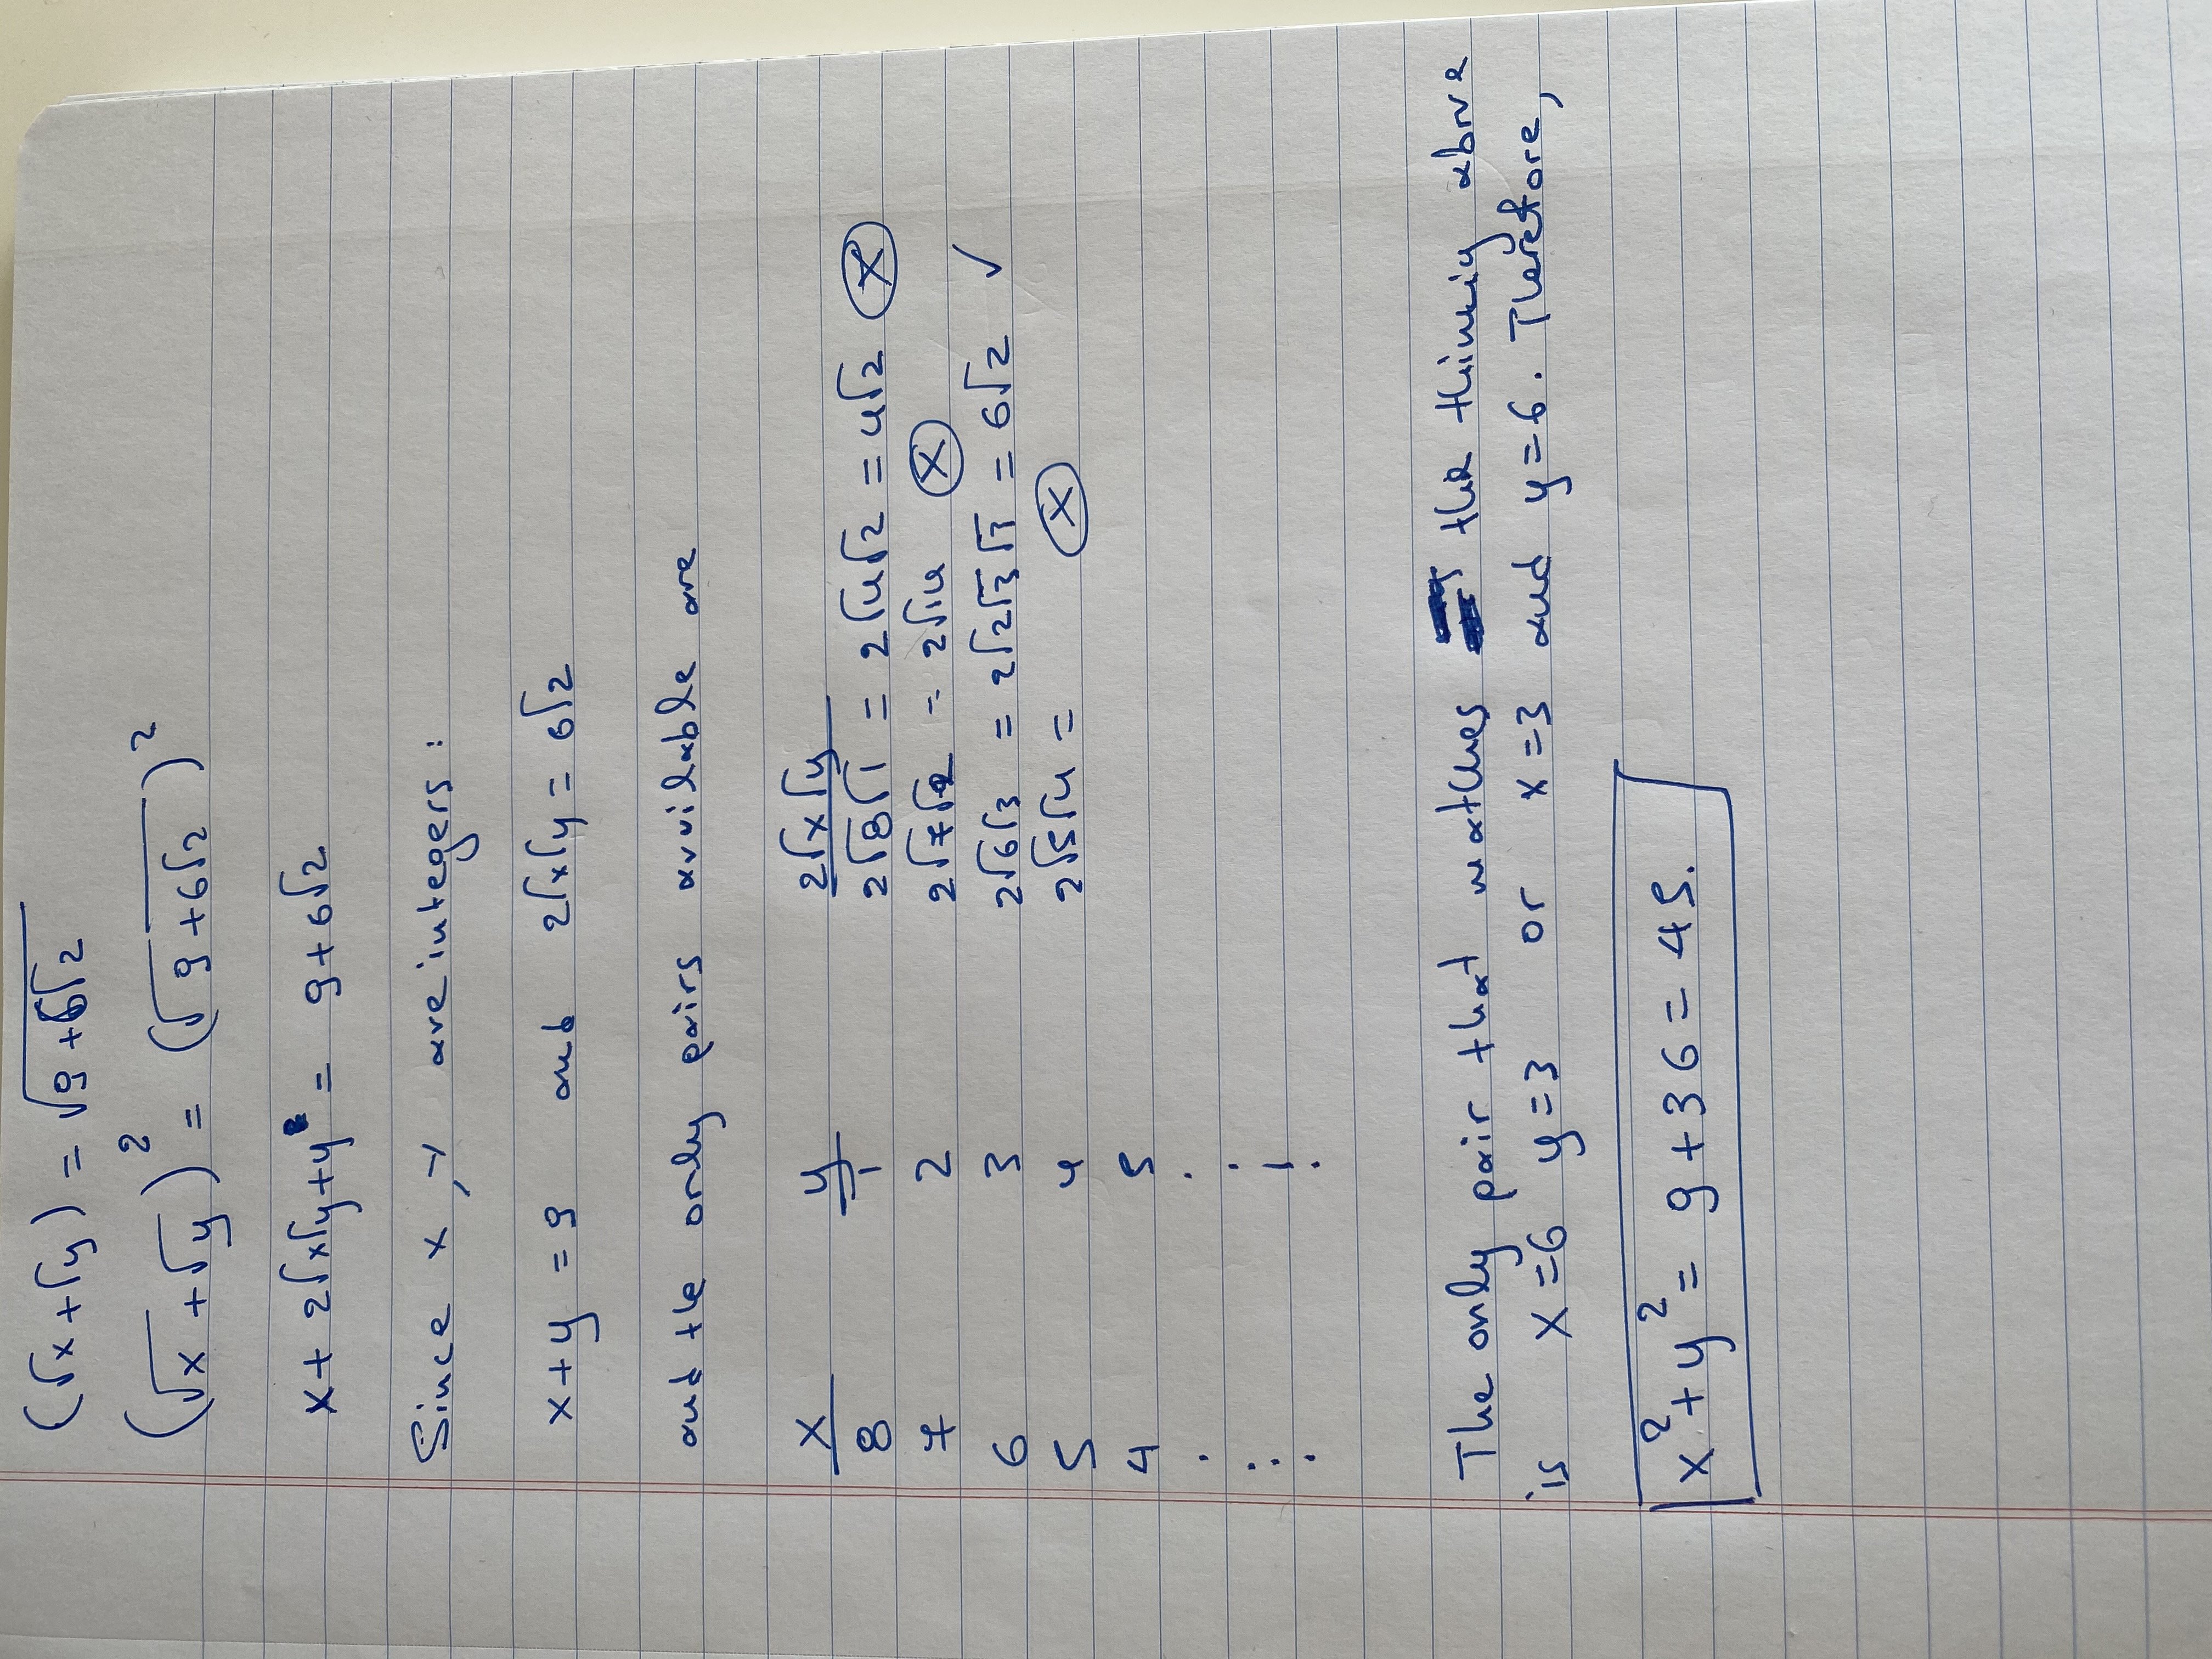 (√x + √y) = √9+6√2
(√x + √y)² = (√9+6√2)²
x + 2√x√y + y = 9+6√2
Since x, y are integers:
x+y = 9 and 2√x√y = 6√2
and the only pairs available are
x y 2√x√y
8 1 2√8√1 = 2√4√2 = 4√2 ⓧ
7 2 2√7√2 = 2√14 ⓧ
6 3 2√6√3 = 2√2√3√3 = 6√2 ✓
5 4 2√5√4 = ⓧ
4 5
. .
. .
. .
The only pair that matches the thinking above
is x=6 y=3 or x=3 and y=6. Therefore,
x²+y² = 9+36 = 45.